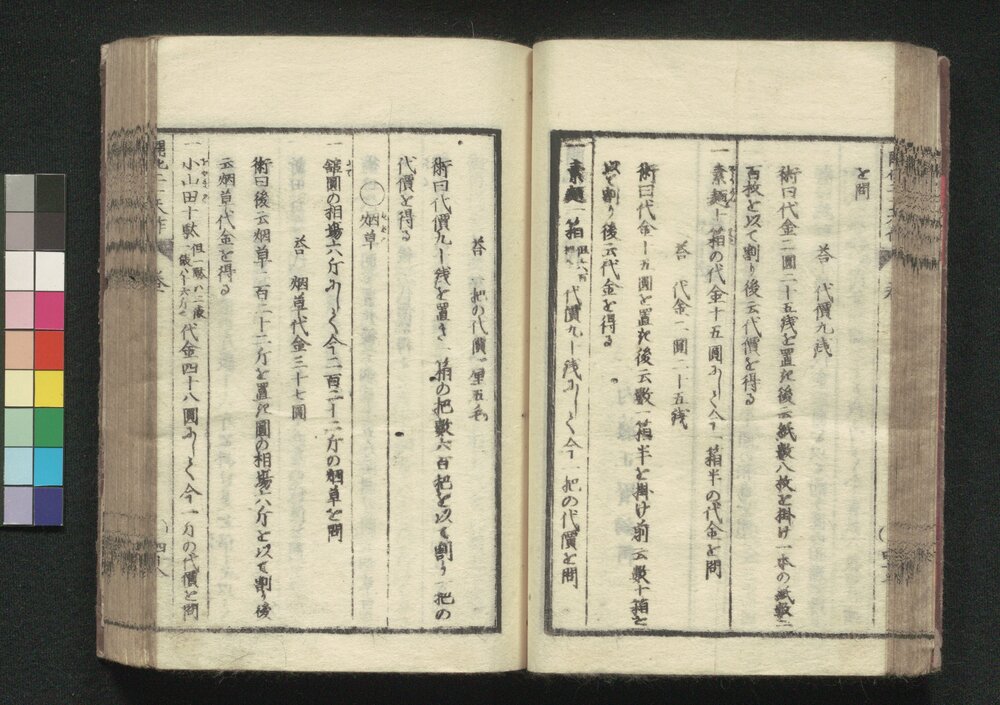 を問
答　代價九銭
術曰代金二圓二十五銭を置き後云紙數八枚を掛け一本の紙數二
百枚を以て割り後云代價を得る
一素麺十箱の代金十五圓ふして今一箱半の代金を問
答　代金二圓二十五銭
術曰代金十五圓を置き後云數一箱半を掛け前云數十箱を
以て割り後云代金を得る
一素麺一箱 代價九十銭ふして今一把の代價を問
答　一把の代價一厘五毛
術曰代價九十銭を置き一箱の把數六百把を以て割り一把の
代價を得る
○烟草
一舘圓の相塲六斤ふして今二百二十二斤の烟草を問
答　烟草代金三十七圓
術曰後云烟草二百二十二斤を置き圓の相塲六斤を以て割り後
云烟草代金を得る
一小山田十駄 但一駄ハ二俵 一俵ハ十六斤 代金四十八圓ふして今一斤の代價を問